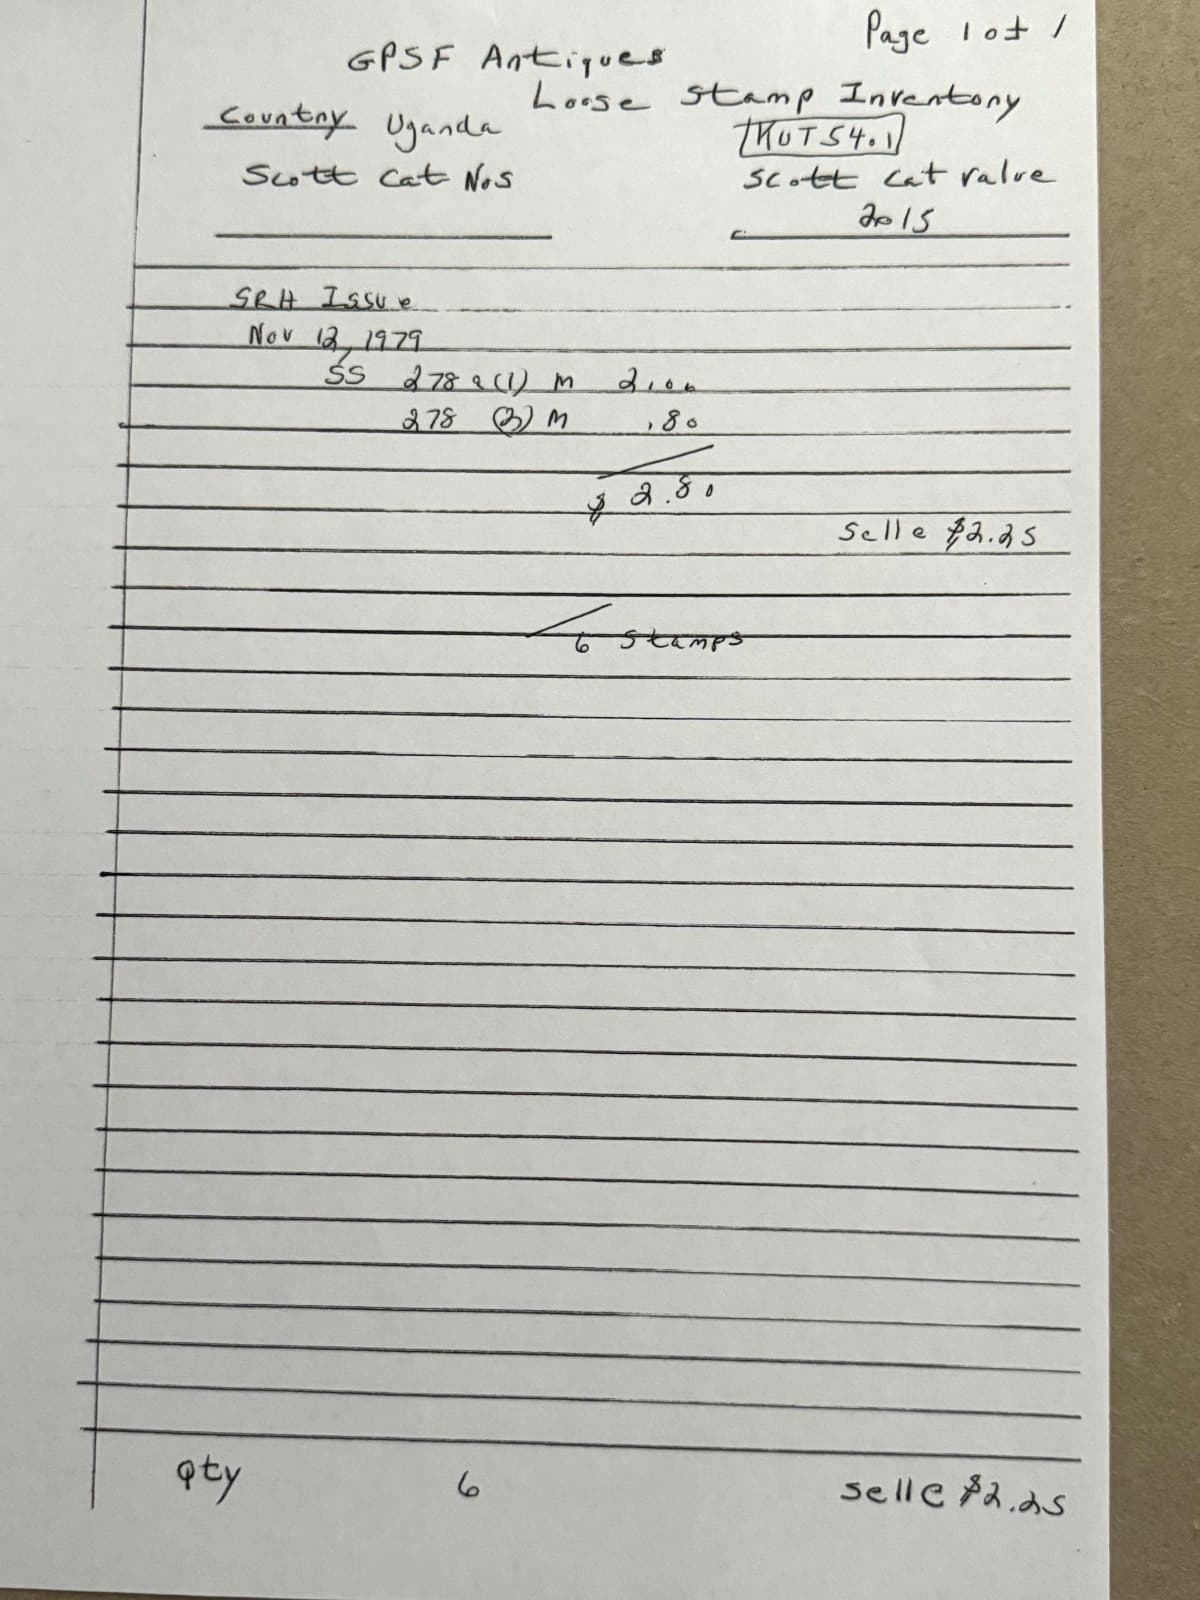 Page 1 of 1
GPSF Antiques
Loose Stamp Inventory
Country Uganda
KUT54.1
Scott Cat Nos
Scott Cat Value
2015
SRH Issue
Nov 12, 1979
SS 278a (1) M 2.00
278 (3) M .80
$ 2.80
Sell @ $2.25
6 Stamps
Qty 6 Sell @ $2.25